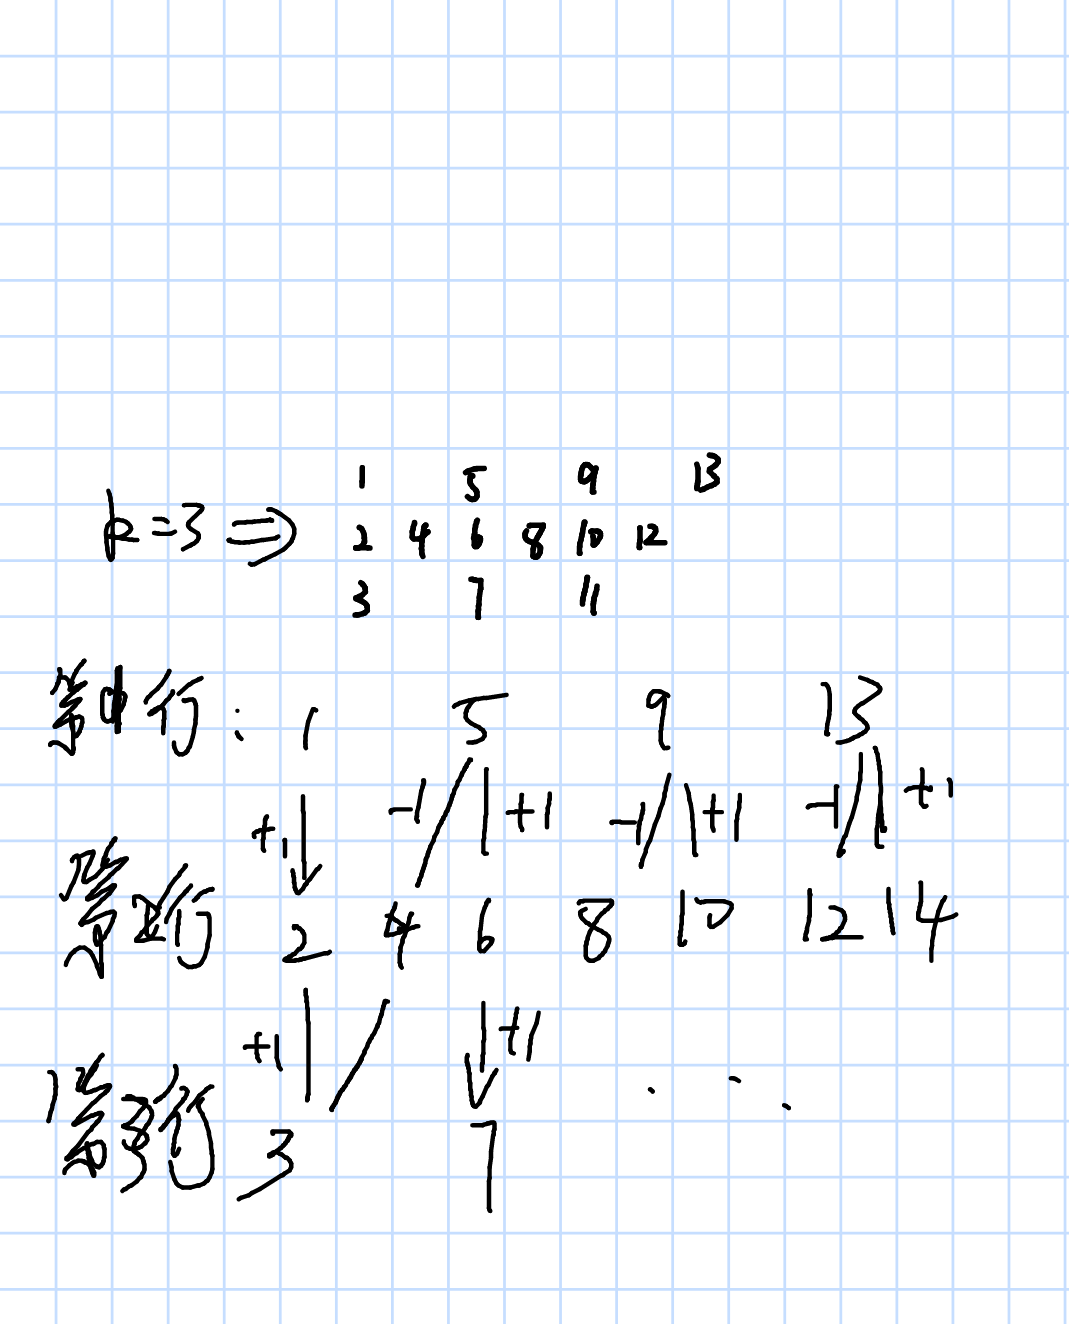 1 5 9 13
k=3 ⇒ 2 4 6 8 10 12
3 7 11
第1行: 1 5 9 13
+1 -1 +1 -1 +1 -1 +1
第2行 2 4 6 8 10 12 14
+1 +1
第3行 3 7 ...